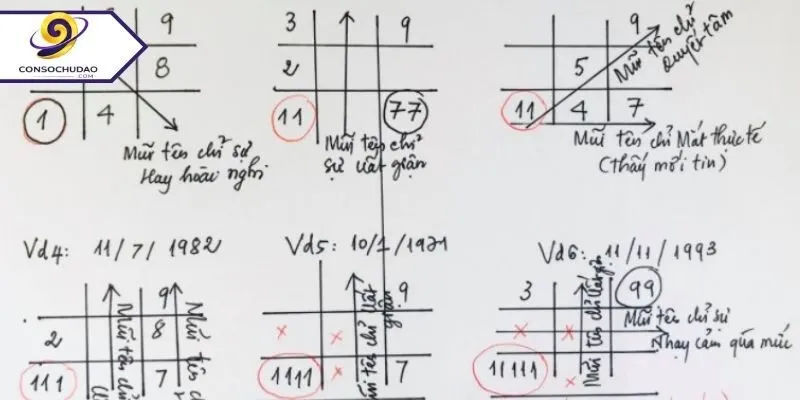 CONSOCHUDAO
.COM
9
8
1 4
Mũi tên chỉ sự
Hay hoài nghi
3 9
2
11 77
Mũi tên chỉ
sự uất giận
9
5
11 4 7
Mũi tên chỉ
Quyết tâm
Mũi tên chỉ Mắt thực tế
(thấy mới tin)
Vd4: 11/7/1982
9
2 8
111 7
Mũi tên chỉ
Mũi tên
Vd5: 10/1/1971
9
× ×
1111 × 7
tên chỉ Uất
giận
Vd6: 11/11/1993
3 99
× ×
11111 ×
Mũi tên chỉ Uất
Mũi tên chỉ sự
Nhạy cảm quá mức